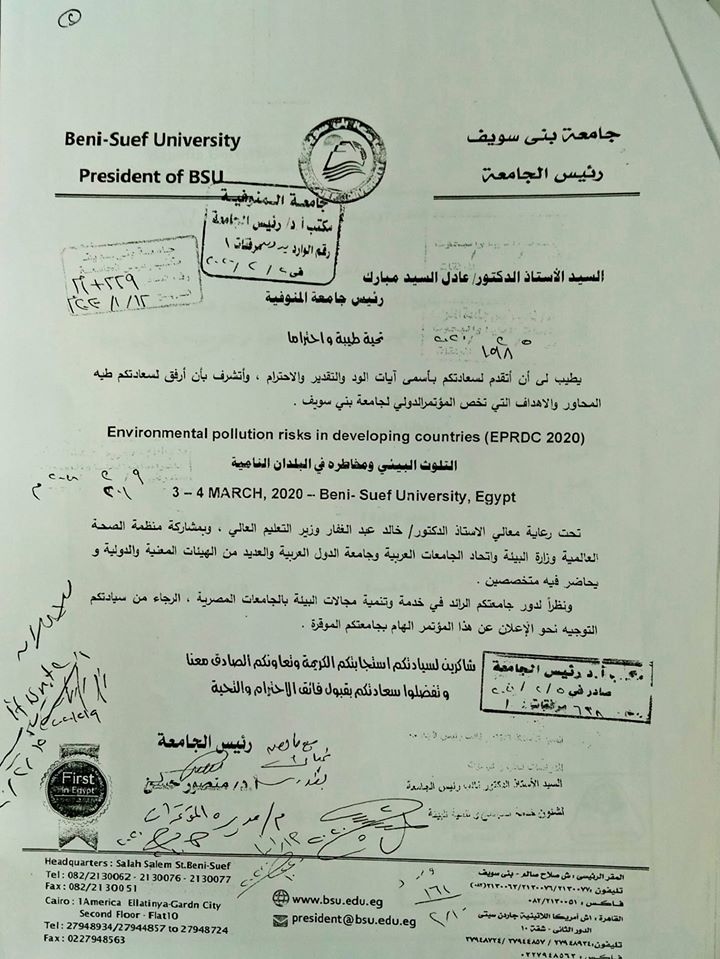 Beni-Suef University
President of BSU
جامعة بنى سويف
رئيس الجامعة
جامعة المنوفية
مكتب أ.د/ رئيس الجامعة
رقم الوارد
السيد الأستاذ الدكتور/ عادل السيد مبارك
رئيس جامعة المنوفية
تحية طيبة واحتراما
يطيب لى أن أتقدم لسعادتكم بأسمى آيات الود والتقدير والاحترام ، وأتشرف بأن أرفق لسعادتكم طيه
المحاور والاهداف التي تخص المؤتمرالدولي لجامعة بني سويف .
Environmental pollution risks in developing countries (EPRDC 2020)
التلوث البيئي ومخاطره في البلدان النامية
3 – 4 MARCH, 2020 – Beni- Suef University, Egypt
تحت رعاية معالي الاستاذ الدكتور/ خالد عبد الغفار وزير التعليم العالي ، وبمشاركة منظمة الصحة
العالمية وزارة البيئة واتحاد الجامعات العربية وجامعة الدول العربية والعديد من الهيئات المعنية والدولية و
يحاضر فيه متخصصين .
ونظراً لدور جامعتكم الرائد في خدمة وتنمية مجالات البيئة بالجامعات المصرية ، الرجاء من سيادتكم
التوجيه نحو الإعلان عن هذا المؤتمر الهام بجامعتكم الموقرة .
شاكرين لسيادتكم استجابتكم الكريمة وتعاونكم الصادق معنا
وتفضلوا سعادتكم بقبول فائق الاحترام والتحية
أ.د رئيس الجامعة
صادر في ٢/٥
مرفقات : ١
رئيس الجامعة
أ.د/ منصور حسن
السيد الأستاذ الدكتور نائب رئيس الجامعة
لشئون خدمة
First
in Egypt
Headquarters : Salah Salem St.Beni-Suef
Tel : 082/2130062 - 2130076 - 2130077
Fax : 082/21 300 51
Cairo : 1America Ellatinya-Gardn City
Second Floor - Flat10
Tel : 27948934/27944857 to 27948724
Fax : 0227948563
www.bsu.edu.eg
president@bsu.edu.eg
المقر الرئيسى : ش صلاح سالم - بنى سويف
تليفون : ٢١٣٠٠٦٢/٢١٣٠٠٧٦/٢١٣٠٠٧٧ (٠٨٢)
فاكس : ٠٨٢/٢١٣٠٠٥١
القاهرة : ١ش أمريكا اللاتينية جاردن سيتى
الدور الثانى - شقة ١٠
تليفون : ٢٧٩٤٨٩٣٤/ ٢٧٩٤٤٨٥٧ / ٢٧٩٤٨٧٢٤
فاكس : ٠٢٢٧٩٤٨٥٦٣